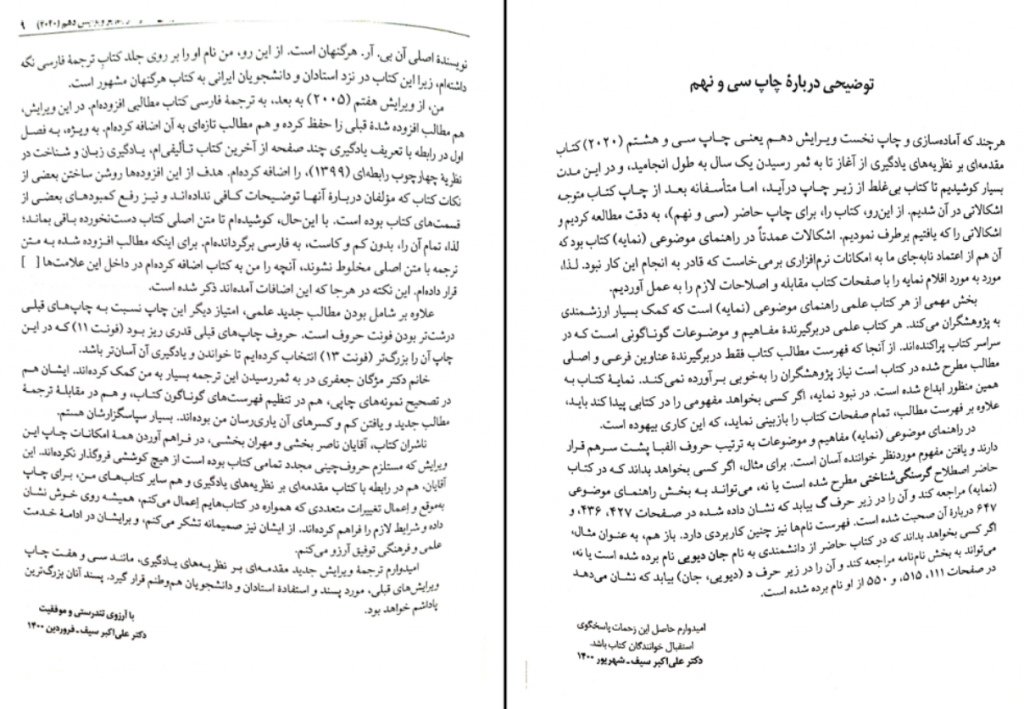 توضیحی دربارهٔ چاپ سی و نهم
هرچند که آماده‌سازی و چاپ نخست ویرایش دهم یعنی چاپ سی و هشتم (۲۰۲۰) کتاب
مقدمه‌ای بر نظریه‌های یادگیری از آغاز تا به ثمر رسیدن یک سال به طول انجامید، و در این مدت
بسیار کوشیدیم تا کتاب بی‌غلط از زیر چاپ درآید، اما متأسفانه بعد از چاپ کتاب متوجه
اشکالاتی در آن شدیم. از این‌رو، کتاب را، برای چاپ حاضر (سی و نهم)، به دقت مطالعه کردیم و
اشکالاتی را که یافتیم برطرف نمودیم. اشکالات عمدتاً در راهنمای موضوعی (نمایه) کتاب بود که
آن هم از اعتماد نابه‌جای ما به امکانات نرم‌افزاری برمی‌خاست که قادر به انجام این کار نبود. لذا،
مورد به مورد اقلام نمایه را با صفحات کتاب مقابله و اصلاحات لازم را به عمل آوردیم.
بخش مهمی از هر کتاب علمی راهنمای موضوعی (نمایه) است که کمک بسیار ارزشمندی
به پژوهشگران می‌کند. هر کتاب علمی دربرگیرندهٔ مفاهیم و موضوعات گوناگونی است که در
سراسر کتاب پراکنده‌اند. از آنجا که فهرست مطالب کتاب فقط دربرگیرندهٔ عناوین فرعی و اصلی
مطالب مطرح شده در کتاب است نیاز پژوهشگران را به‌خوبی برآورده نمی‌کند. نمایهٔ کتاب به
همین منظور ابداع شده است. در نبود نمایه، اگر کسی بخواهد مفهومی را در کتابی پیدا کند باید،
علاوه بر فهرست مطالب، تمام صفحات کتاب را بازبینی نماید، که این کاری بیهوده است.
در راهنمای موضوعی (نمایه) مفاهیم و موضوعات به ترتیب حروف الفبا پشت سرهم قرار
دارند و یافتن مفهوم موردنظر خواننده آسان است. برای مثال، اگر کسی بخواهد بداند که در کتاب
حاضر اصطلاح گرسنگی‌شناختی مطرح شده است یا نه، می‌تواند به بخش راهنمای موضوعی
(نمایه) مراجعه کند و آن را در زیر حرف گ بیابد که نشان داده شده در صفحات ۴۲۷، ۴۳۶، و
۶۴۷ دربارهٔ آن صحبت شده است. فهرست نام‌ها نیز چنین کاربردی دارد. باز هم، به عنوان مثال،
اگر کسی بخواهد بداند که در کتاب حاضر از دانشمندی به نام جان دیویی نام برده شده است یا نه،
می‌تواند به بخش نام‌نامه مراجعه کند و آن را در زیر حرف د (دیویی، جان) بیابد که نشان می‌دهد
در صفحات ۱۱۱، ۵۱۵، و ۵۵۰ از او نام برده شده است.
امیدوارم حاصل این زحمات پاسخگوی
استقبال خوانندگان کتاب باشد.
دکتر علی‌اکبر سیف ـ شهریور ۱۴۰۰
دهم (۲۰۲۰) ۹
نویسندهٔ اصلی آن بی. آر. هرگنهان است. از این رو، من نام او را بر روی جلد کتاب ترجمهٔ فارسی نگه
داشته‌ام، زیرا این کتاب در نزد استادان و دانشجویان ایرانی به کتاب هرگنهان مشهور است.
من، از ویرایش هفتم (۲۰۰۵) به بعد، به ترجمهٔ فارسی کتاب مطالبی افزوده‌ام. در این ویرایش،
هم مطالب افزوده شدهٔ قبلی را حفظ کرده و هم مطالب تازه‌ای به آن اضافه کرده‌ام. به ویژه، به فصل
اول در رابطه با تعریف یادگیری چند صفحه از آخرین کتاب تألیفی‌ام، یادگیری زبان و شناخت در
نظریهٔ چهارچوب رابطه‌ای (۱۳۹۹)، را اضافه کرده‌ام. هدف از این افزوده‌ها روشن ساختن بعضی از
نکات کتاب که مؤلفان دربارهٔ آنها توضیحات کافی نداده‌اند و نیز رفع کمبودهای بعضی از
قسمت‌های کتاب بوده است. با این‌حال، کوشیده‌ام تا متن اصلی کتاب دست‌نخورده باقی بماند؛
لذا، تمام آن را، بدون کم و کاست، به فارسی برگردانده‌ام. برای اینکه مطالب افزوده شده به متن
ترجمه با متن اصلی مخلوط نشوند، آنچه را من به کتاب اضافه کرده‌ام در داخل این علامت‌ها [ ]
قرار داده‌ام. این نکته در هرجا که این اضافات آمده‌اند ذکر شده است.
علاوه بر شامل بودن مطالب جدید علمی، امتیاز دیگر این چاپ نسبت به چاپ‌های قبلی
درشت‌تر بودن فونت حروف است. حروف چاپ‌های قبلی قدری ریز بود (فونت ۱۱) که در این
چاپ آن را بزرگ‌تر (فونت ۱۳) انتخاب کرده‌ایم تا خواندن و یادگیری آن آسان‌تر باشد.
خانم دکتر مژگان جعفری در به ثمررسیدن این ترجمه بسیار به من کمک کرده‌اند. ایشان هم
در تصحیح نمونه‌های چاپی، هم در تنظیم فهرست‌های گوناگون کتاب، و هم در مقابلهٔ ترجمهٔ
مطالب جدید و یافتن کم و کسرهای آن یاری‌رسان من بوده‌اند. بسیار سپاسگزارشان هستم.
ناشران کتاب، آقایان ناصر بخشی و مهران بخشی، در فراهم آوردن همهٔ امکانات چاپ این
ویرایش که مستلزم حروف‌چینی مجدد تمامی کتاب بوده است از هیچ کوششی فروگذار نکرده‌اند. این
آقایان، هم در رابطه با کتاب مقدمه‌ای بر نظریه‌های یادگیری و هم سایر کتاب‌های من، برای چاپ
به‌موقع و اِعمال تغییرات متعددی که همواره در کتاب‌هایم اِعمال می‌کنم، همیشه روی خوش نشان
داده و شرایط لازم را فراهم کرده‌اند. از ایشان نیز صمیمانه تشکر می‌کنم، و برایشان در ادامهٔ خدمت
علمی و فرهنگی توفیق آرزو می‌کنم.
امیدوارم ترجمهٔ ویرایش جدید مقدمه‌ای بر نظریه‌های یادگیری، مانند سی و هفت چاپ
ویرایش‌های قبلی، مورد پسند و استفادهٔ استادان و دانشجویان هم‌وطنم قرار گیرد. پسند آنان بزرگ‌ترین
پاداشم خواهد بود.
با آرزوی تندرستی و موفقیت
دکتر علی‌اکبر سیف ـ فروردین ۱۴۰۰